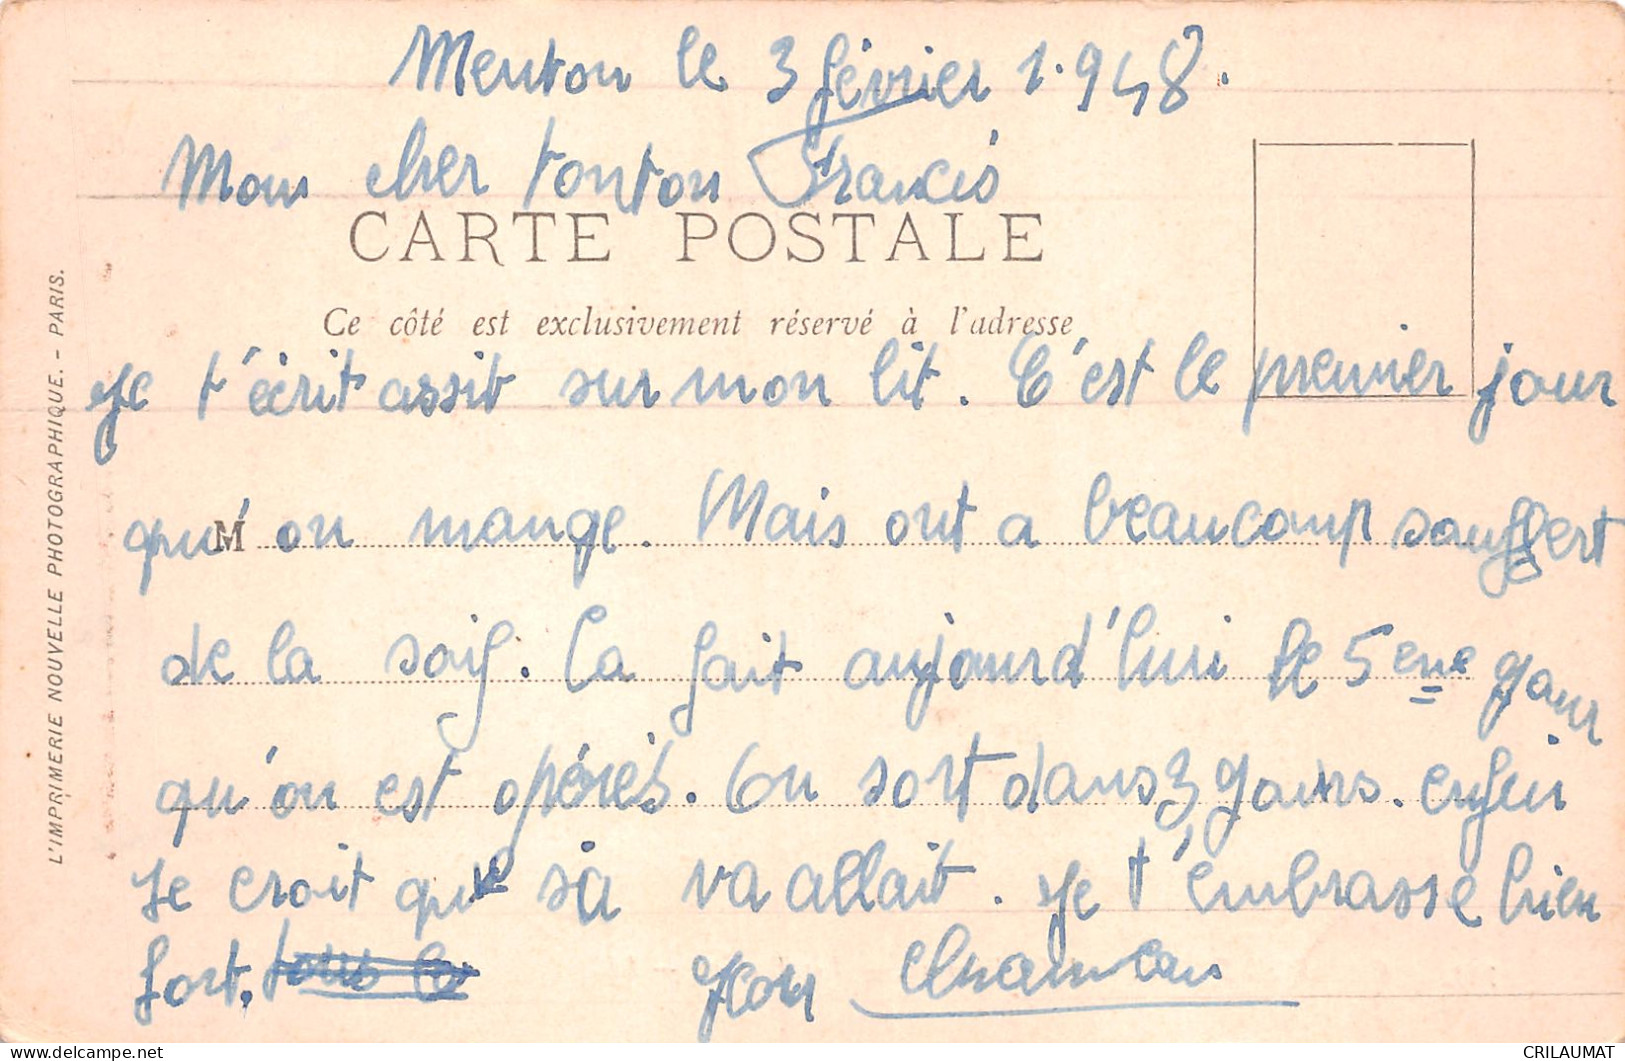 Menton le 3 février 1.948.
Mon cher tonton Francis
CARTE POSTALE
Ce côté est exclusivement réservé à l'adresse
Je t'écrit assit sur mon lit. C'est le premier jour
qu'on mange. Mais ont a beaucoup souffert
M
de la soif. Ca fait aujourd'hui le 5 eme jour
qu'on est opérés. On sort dans 3 jours. enfin
Je croit que sa va allait. Je t'embrasse bien
fort. Jean
L'IMPRIMERIE NOUVELLE PHOTOGRAPHIQUE. - PARIS.
CRILAUMAT